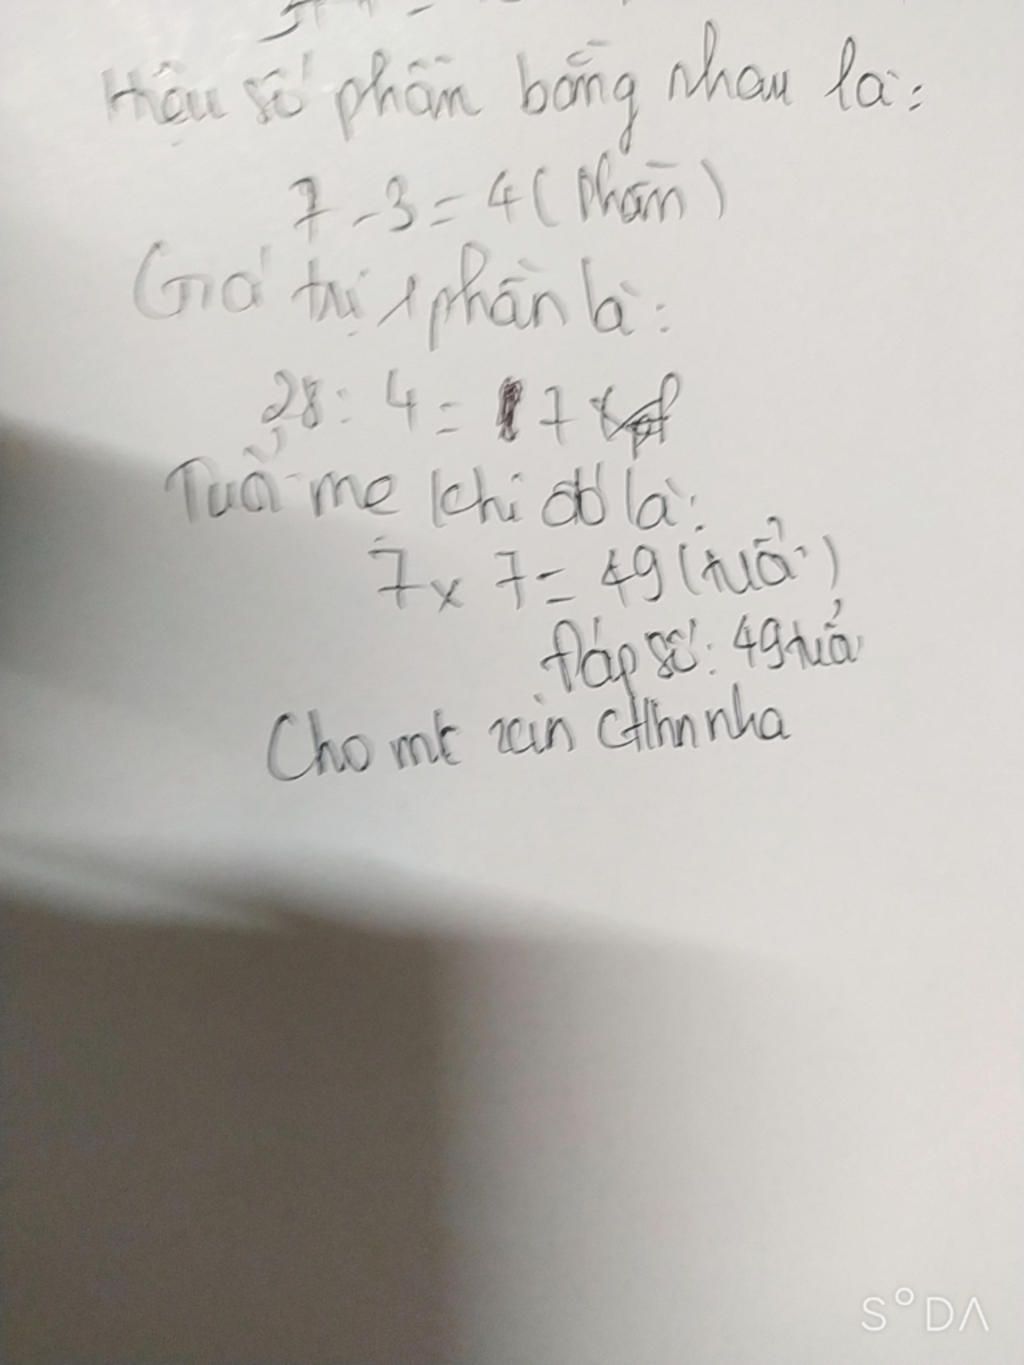 Hiệu số phần bằng nhau là:
7 - 3 = 4 (phần)
Giá trị 1 phần là:
28 : 4 = 7
Tuổi mẹ khi đó là:
7 x 7 = 49 (tuổi)
Đáp số: 49 tuổi
Cho mk xin ctlhn nha
S°DA